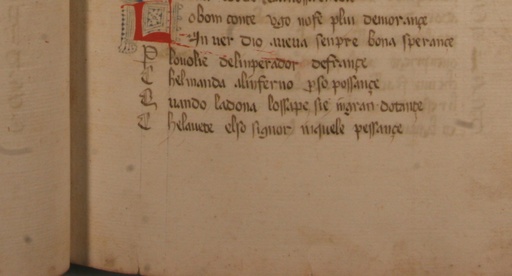 L o bom conte Ugo nose plui demorançe
In ver dio aueua senpre bona sperance
P lo uolie delinperador defrançe
C hel manda alinferno p so possançe
Q uando ladona lossape sie ingran dotançe
C helauete elso signor inquele pessançe